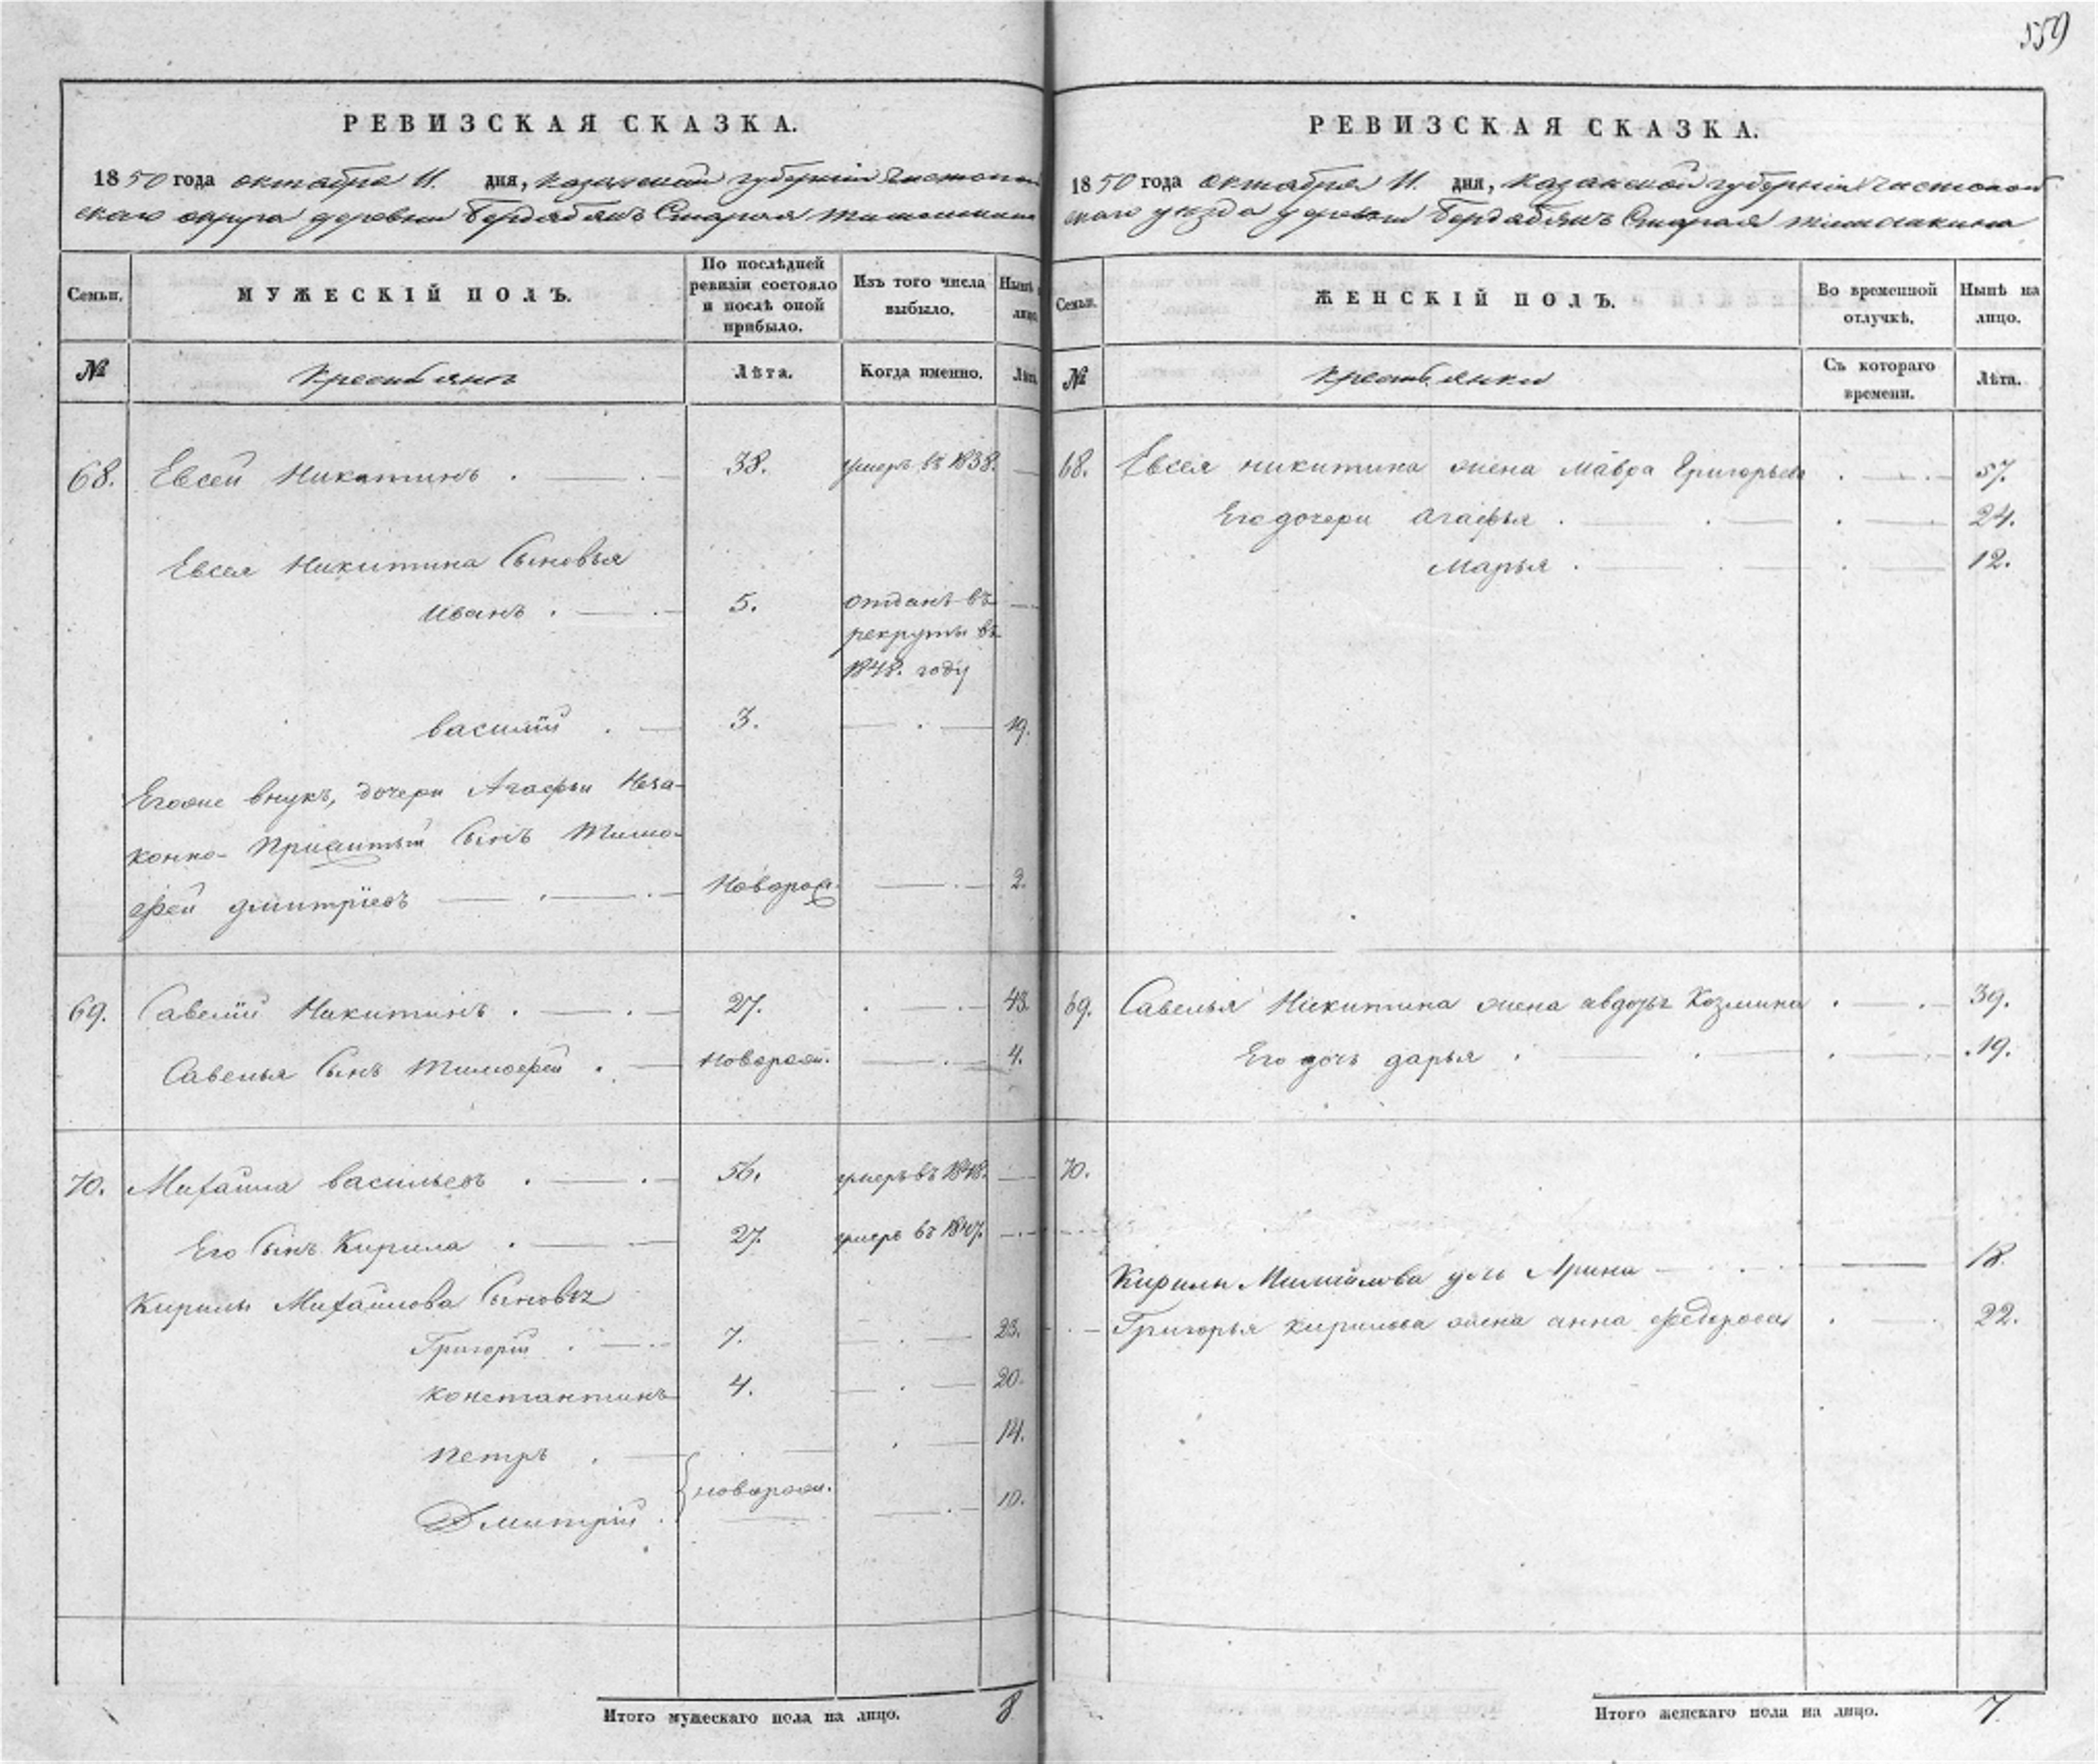 559
РЕВИЗСКАЯ СКАЗКА.
1850 года октября 11. дня, Казанской губернии Чистополь
скаго округа деревни Бердебякъ Старая
Семьи.
МУЖЕСКІЙ ПОЛЪ.
По послѣдней ревизіи состояло и послѣ оной прибыло.
Изъ того числа выбыло.
Нынѣ
лицо
№
Крестьянъ
Лѣта.
Когда именно.
Лѣта
68. Евсей Никитинъ . 38. умеръ въ 1838.
Евсея Никитина Сыновья
Иванъ . 5. отданъ въ
рекруты въ
1848. году
Василій . 3. 19.
Егоже внукъ, дочери Агафьи Неза-
конно- Прижитый Сынъ Тимо-
фей Дмитріевъ Новорож. 2.
69. Савелій Никитинъ . 27. 43.
Савелья Сынъ Тимофей . Новорож. 4.
70. Михаила Васильевъ . 56. умеръ въ 1848.
Его Сынъ Кирила . 27. умеръ въ 1847.
Кирилы Михайлова Сыновья
Григорій . 7. 23.
Константинъ 4. 20.
Петръ . 14.
новорож.
Дмитрій . 10.
Итого мужескаго пола на лицо. 8
РЕВИЗСКАЯ СКАЗКА.
1850 года октября 11. дня, Казанской губерніи Чистополь
скаго уезда деревни Бердебякъ Старая
Семьи.
ЖЕНСКІЙ ПОЛЪ.
Во временной отлучкѣ.
Нынѣ на лицо.
№
Крестьянки
Съ котораго времени.
Лѣта.
68. Евсея Никитина жена Мавра Григорьева 57.
Его дочери Агафья . 24.
Марья . 12.
69. Савелья Никитина жена Авдотья Козмина 39.
Его дочь Дарья . 19.
70.
Кирилы Михайлова дочь Арина 18.
Григорья Кирилова жена Анна Федорова 22.
Итого женскаго пола на лицо. 7